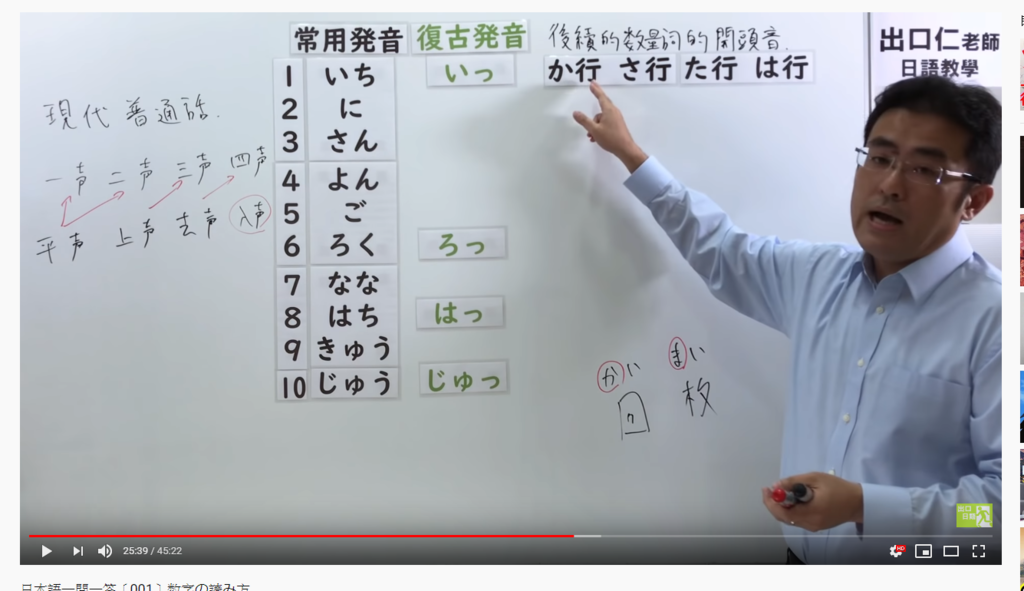 常用発音 復古発音 後續的数量詞的開頭音.
か行 さ行 た行 は行
出口仁老師
日語教學
1 いち いっ
2 に
3 さん
4 よん
5 ご
6 ろく ろっ
7 なな
8 はち はっ
9 きゅう
10 じゅう じゅっ
現代 普通話.
一声 二声 三声 四声
平声 上声 去声 入声
かい まい
回 枚
出口
日語
25:39 / 45:22
HD
日本語一問一答〔001〕数字の読み方